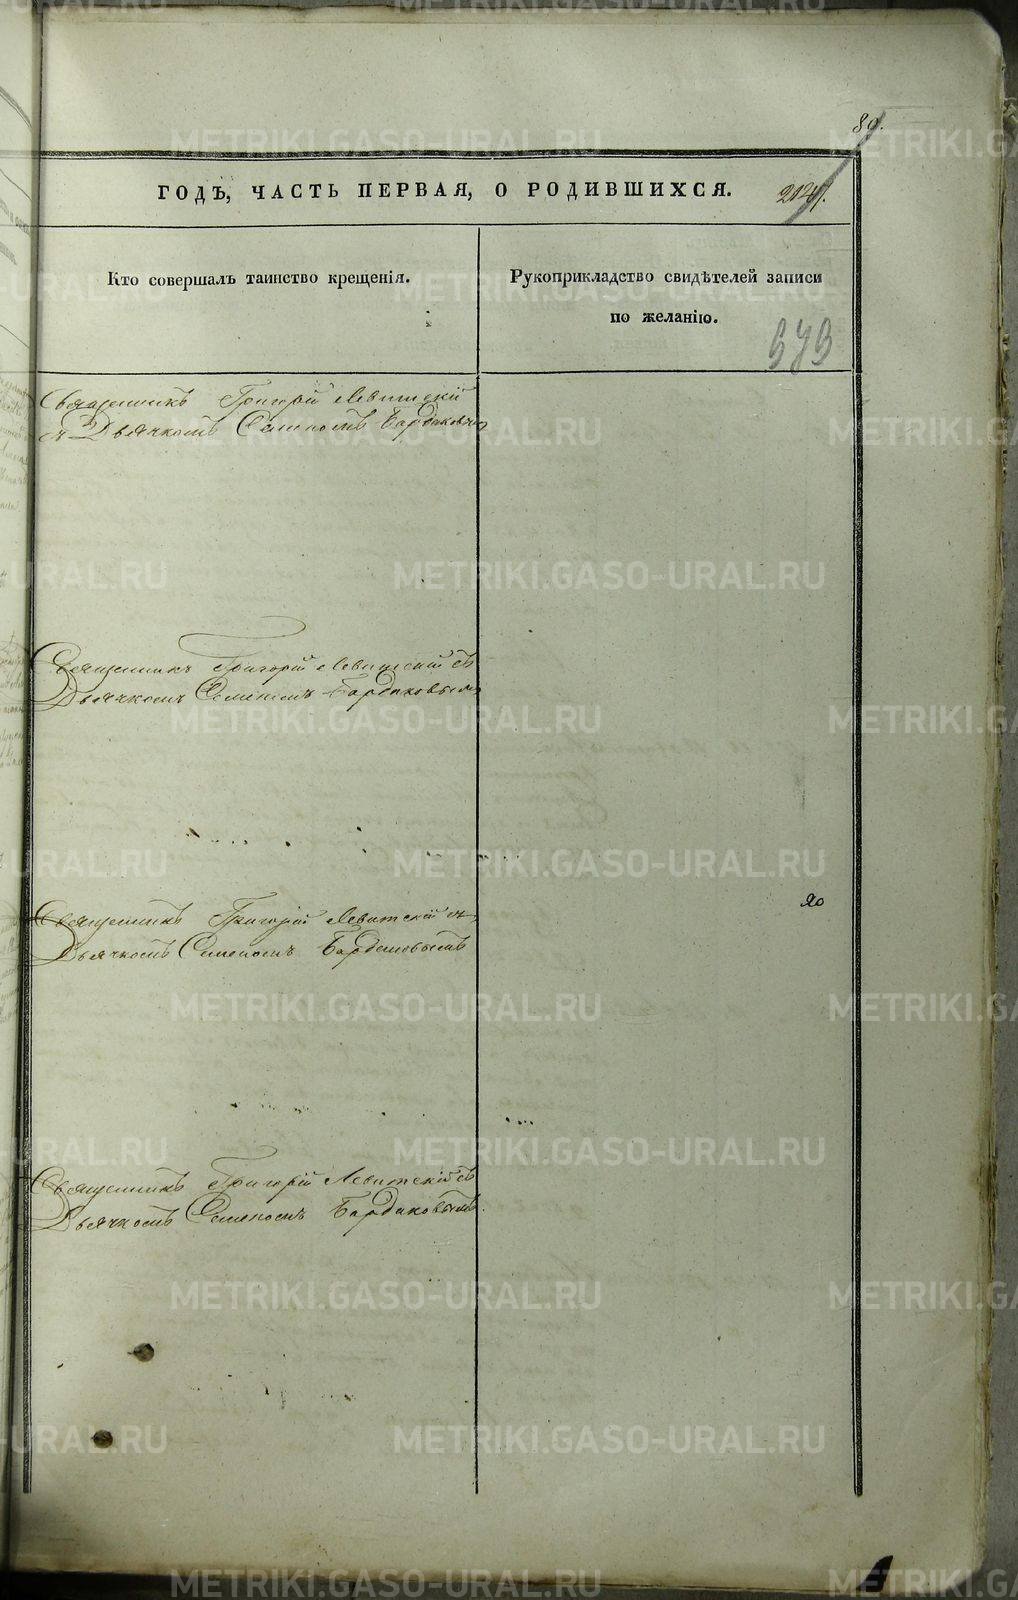 89.
ГОДЪ, ЧАСТЬ ПЕРВАЯ, О РОДИВШИХСЯ.
Кто совершалъ таинство крещенія.
Рукоприкладство свидѣтелей записи
по желанію.
Священникъ Григорій Левитскій
съ Дьячкомъ Семеномъ Бардаковымъ
Священникъ Григорій Левитскій съ
Дьячкомъ Семеномъ Бардаковымъ
Священникъ Григорій Левитскій съ
Дьячкомъ Семеномъ Бардаковымъ
Священникъ Григорій Левитскій съ
Дьячкомъ Семеномъ Бардаковымъ.
METRIKI.GASO-URAL.RU